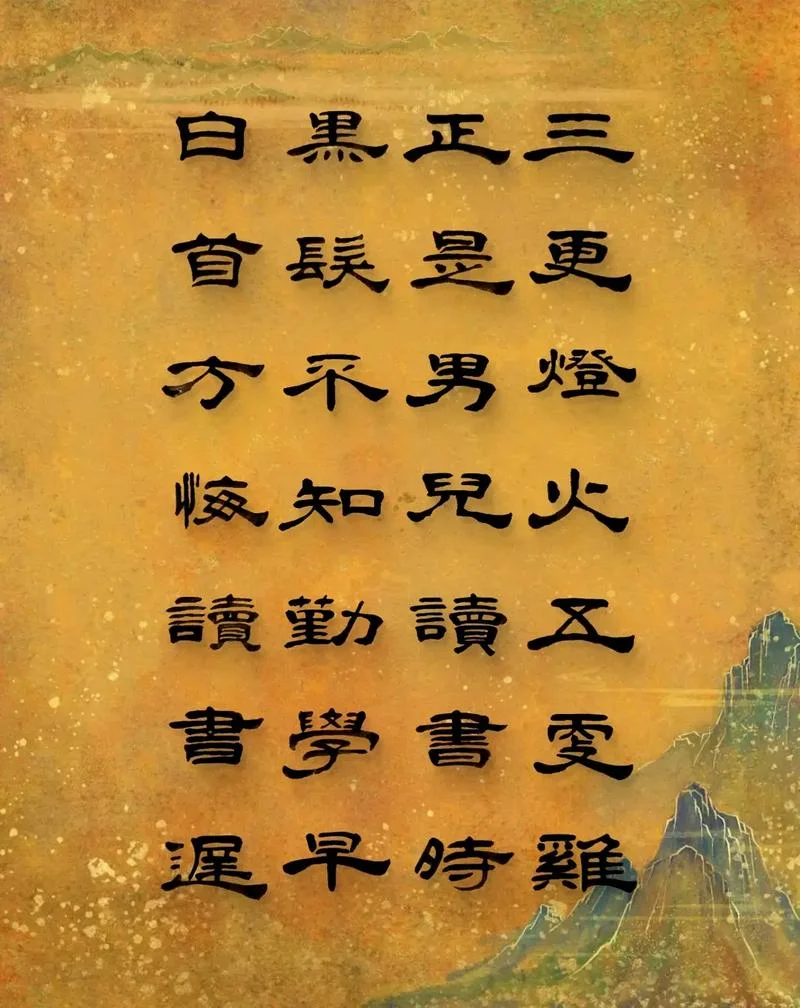 三更燈火五更雞
正是男兒讀書時
黑髮不知勤學早
白首方悔讀書遲